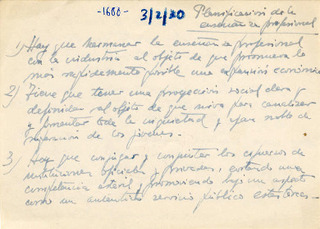 -1688-
3/2/20
Planificación de la
enseñanza profesional
1) Hay que hermanar la enseñanza profesional
con la industria al objeto de que promueva lo
más rápidamente posible una expansión económica
2) Tiene que tener una proyección social clara y
definida al objeto de que sirva para canalizar
y fomentar toda la inquietud y afan noble de
superación de los jóvenes.
3) Hay que conjugar y conjuntar los esfuerzos de
instituciones oficiales y privadas, evitando una
competencia estéril y promoviendo bajo un aspecto
como un auténtico servicio público